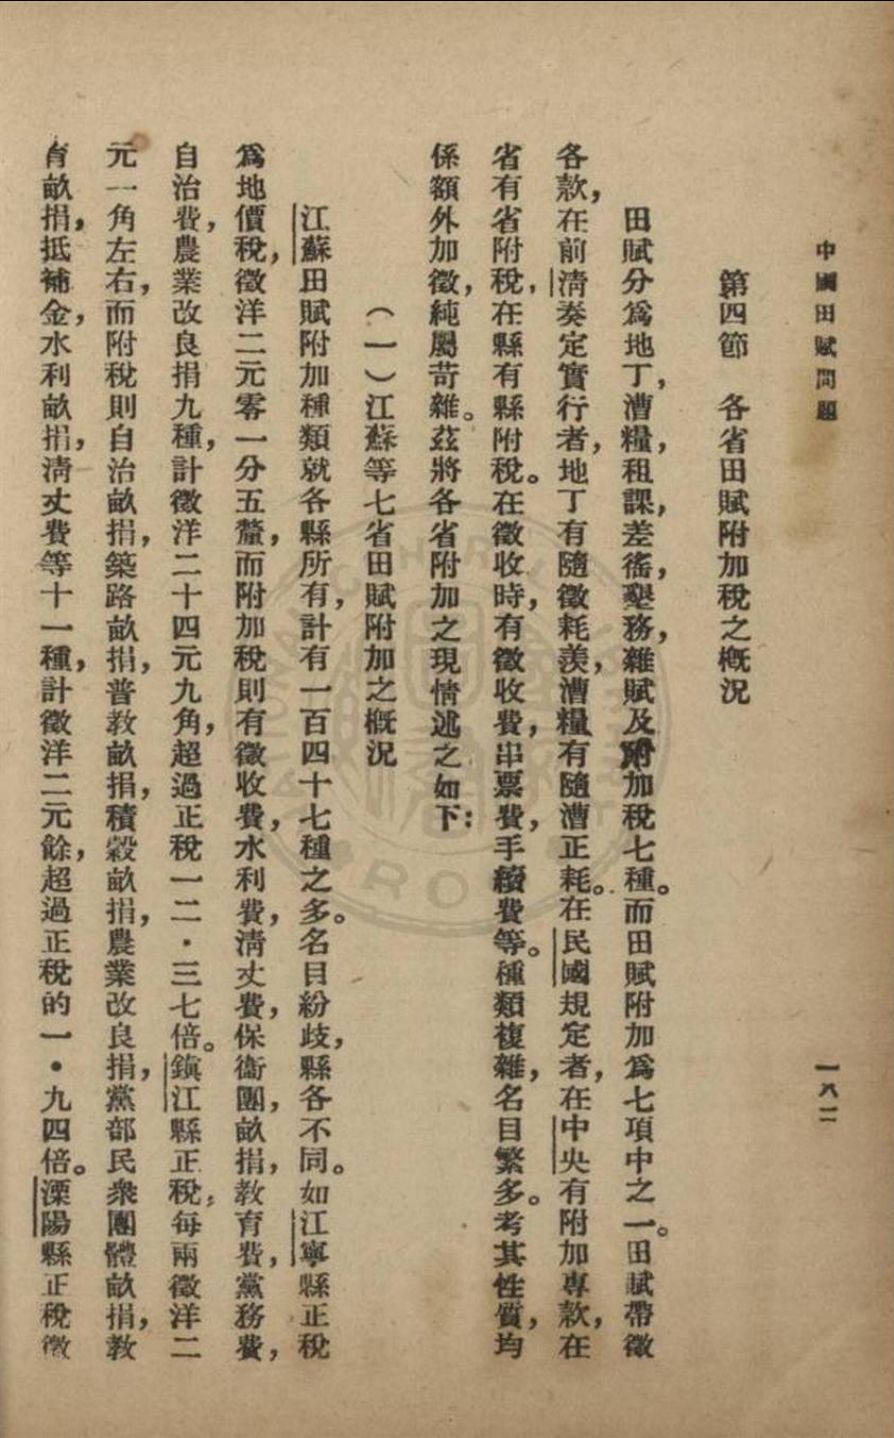 中國田賦問題
一八二
第四節　各省田賦附加稅之概況
田賦分爲地丁，漕糧，租課，差徭，墾務，雜賦及附加稅七種。而田賦附加爲七項中之一。田賦帶徵
各款，在前清奏定實行者，地丁有隨徵耗羨，漕糧有隨漕正耗。在民國規定者，在中央有附加專款，在
省有省附稅，在縣有縣附稅。在徵收時，有徵收費，串票費，手續費等。種類複雜，名目繁多。考其性質，均
係額外加徵，純屬苛雜。茲將各省附加之現情述之如下：
（一）江蘇等七省田賦附加之概況
江蘇田賦附加種類就各縣所有，計有一百四十七種之多。名目紛歧，縣各不同。如江寧縣正稅
爲地價稅，徵洋二元零一分五釐，而附加稅則有徵收費，水利費，清丈費，保衞團，畝捐，教育費，黨務費，
自治費，農業改良捐九種，計徵洋二十四元九角，超過正稅一二・三七倍。鎮江縣正稅，每兩徵洋二
元一角左右，而附稅則自治畝捐，築路畝捐，普教畝捐，積穀畝捐，農業改良捐，黨部民衆團體畝捐，教
育畝捐，抵補金，水利畝捐，清丈費等十一種，計徵洋二元餘，超過正稅的一・九四倍。溧陽縣正稅徵